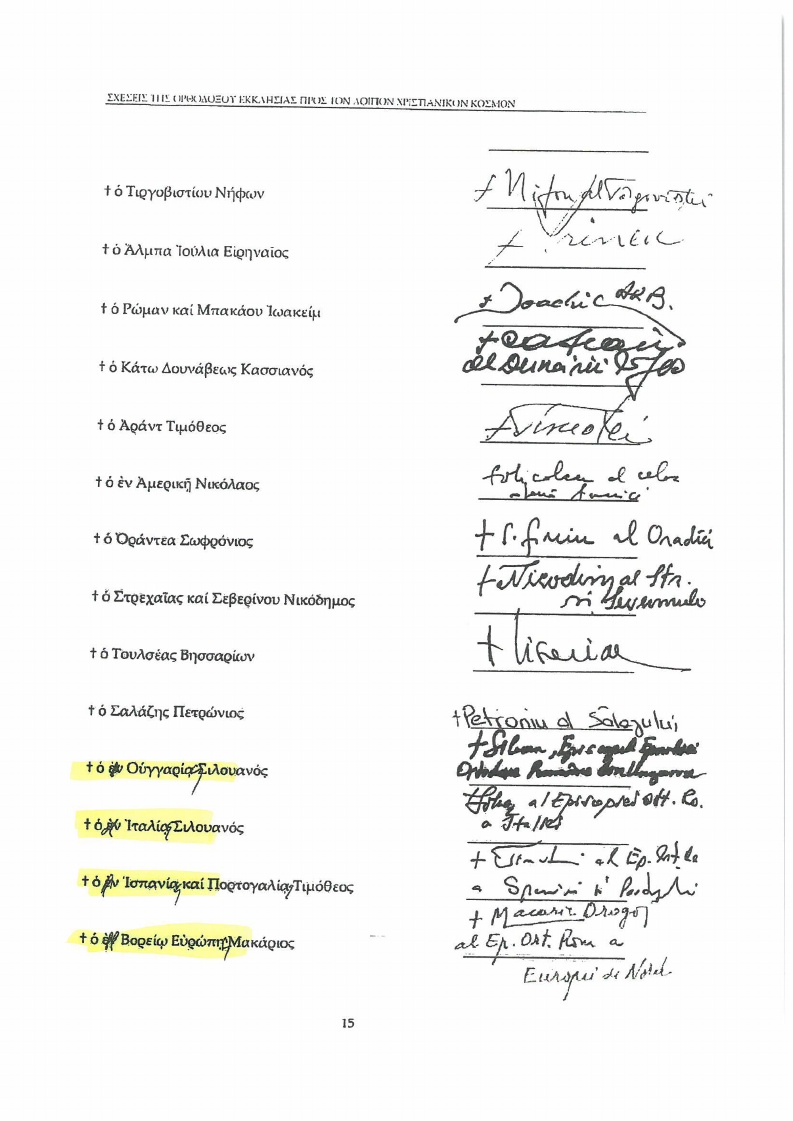 ΣΧΕΣΕΙΣ ΤΗΣ ΟΡΘΟΔΟΞΟΥ ΕΚΚΛΗΣΙΑΣ ΠΡΟΣ ΤΟΝ ΛΟΙΠΟΝ ΧΡΙΣΤΙΑΝΙΚΟΝ ΚΟΣΜΟΝ
† ὁ Τιργοβιστίου Νήφων
+ Nifon al Targovistei
† ὁ Ἄλμπα Ἰούλια Εἰρηναῖος
+ Irineu
† ὁ Ρώμαν καί Μπακάου Ἰωακείμ
+ Ioachim
† ὁ Κάτω Δουνάβεως Κασσιανός
al Dunării
† ὁ Ἀράντ Τιμόθεος
+ Timotei
† ὁ ἐν Ἀμερικῇ Νικόλαος
† ὁ Ὀράντεα Σωφρόνιος
al Oradiei
† ὁ Στρεχαΐας καί Σεβερίνου Νικόδημος
+ Nicodim al Str.
si Severinului
† ὁ Τουλσέας Βησσαρίων
† ὁ Σαλάζης Πετρώνιος
+ Petroniu al Salajului
† ὁ ἐν Οὑγγαρίᾳ, Σιλουανός
+ Siluan, Episcopul
† ὁ ἐν Ἰταλίᾳ, Σιλουανός
al Episcopiei Ort. Ro.
a Italiei
† ὁ ἐν Ἱσπανίᾳ, καί Πορτογαλίᾳ, Τιμόθεος
al Ep. Ort. de
a Spaniei si
† ὁ ἐν Βορείῳ Εὐρώπῃ, Μακάριος
+ Macarie Drăgoi
al Ep. Ort. Rom. a
Europei de Nord
15